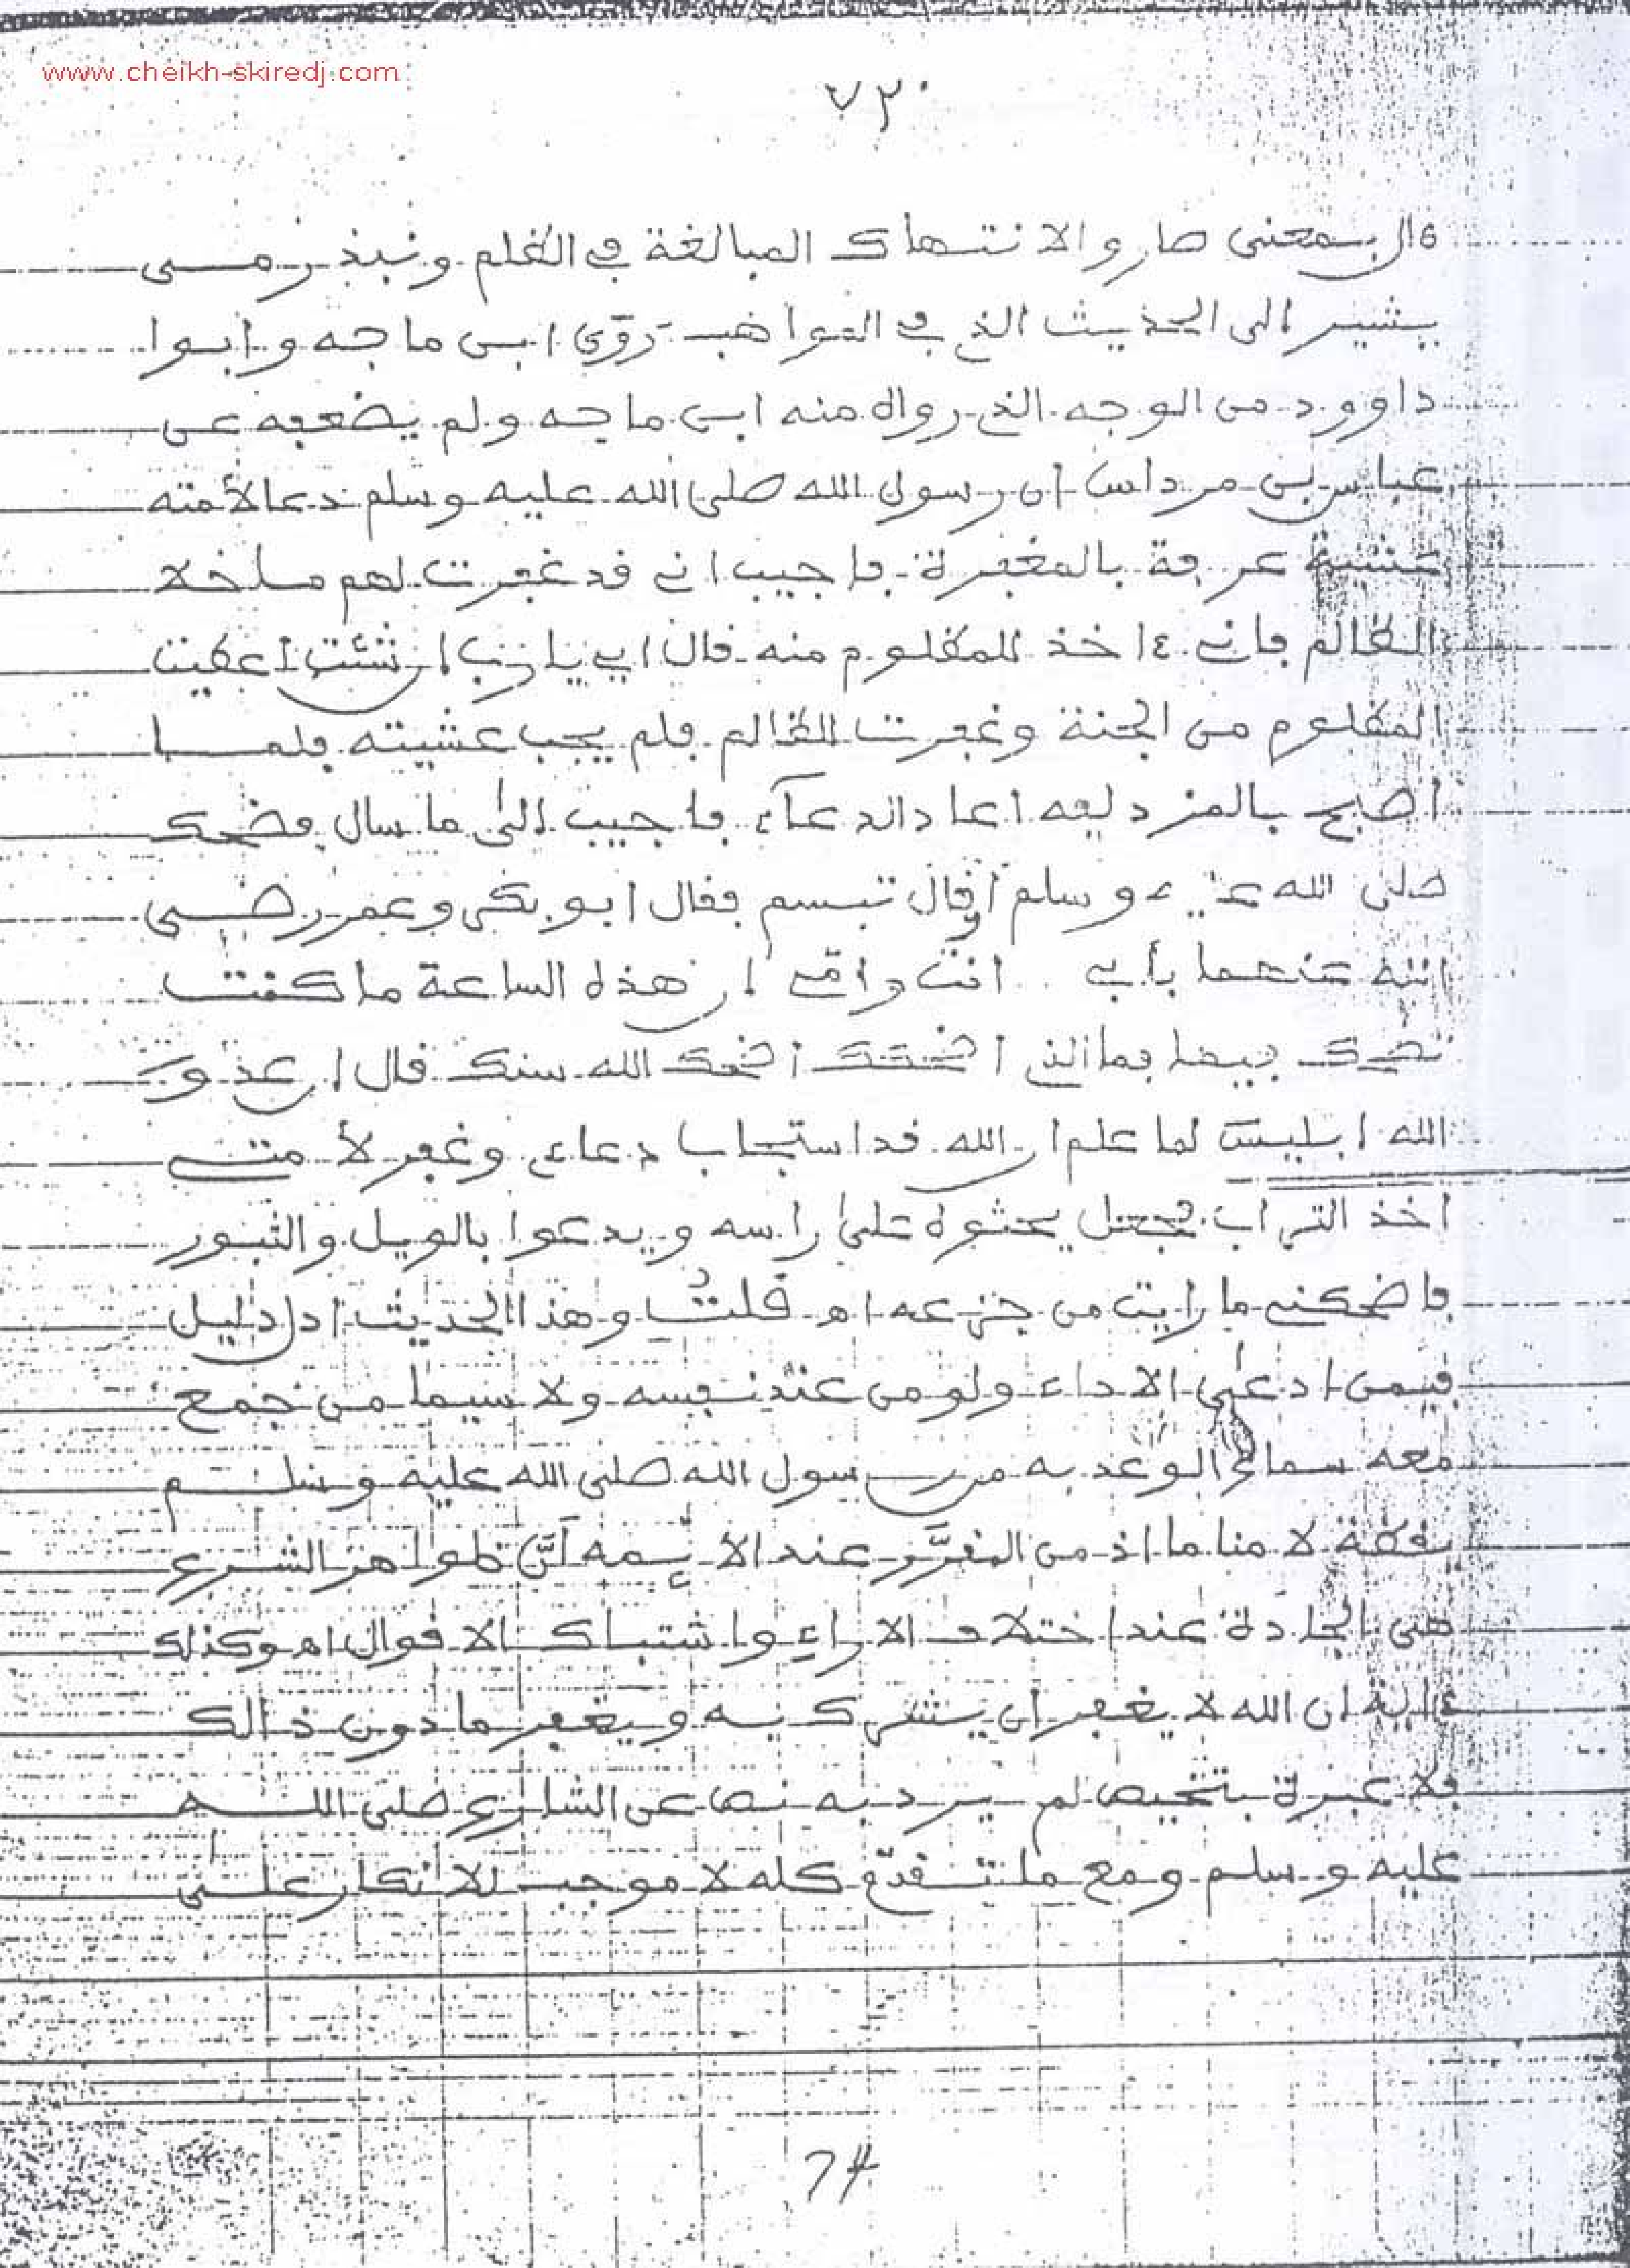 www.cheikh-skiredj.com
٧٣
ءال بمعنى صار والانتهاك المبالغة في الظلم ونبذ رمى
يشير الى الحديث الذي في المواهب روى ابن ماجه وابوا
داوود من الوجه الذي رواه منه ابن ماجه ولم يضعفه عن
عباس بن مرداس ان رسول الله صلى الله عليه وسلم دعا لأمته
عشية عرفة بالمغفرة فاجيب اني قد غفرت لهم ما خلا
الظالم فاني ءاخذ للمظلوم منه قال اي يا رب ان شئت اعطيت
المظلوم من الجنة وغفرت للظالم فلم يجب عشيته فلما
اصبح بالمزدلفه اعاد الدعآء فاجيب الى ما سال فضحك
صلى الله عليه وسلم او قال تبسم فقال ابو بكر وعمر رضي
الله عنهما بأبي انت وامي ان هذه الساعة ما كنت
تضحك فيها فما الذي اضحكك اضحك الله سنك قال ان عدو
الله ابليس لما علم ان الله قد استجاب دعاءي وغفر لأمتي
اخذ التراب فجعل يحثوه على راسه ويدعوا بالويل والثبور
فاضحكني ما رايت من جزعه اه قلت وهذا الحديث ادل دليل
فيمن ادعى الاداء ولو من عند نفسه ولا سيما من جمع
معه سماع الوعد به من رسول الله صلى الله عليه وسلم
يقظة لا مناما اذ من المقرَّر عند الايمه أنَّ ظواهر الشرع
هي الجادة عند اختلاف الاراء واشتباك الاقوال اه وكذلك
ءاية ان الله لا يغفر ان يشرك به ويغفر ما دون ذالك
فلا عبرة بتخصيص لم يرد به نص عن الشارع صلى الله
عليه وسلم ومع ما تقدم كله لا موجب للانكار على
74